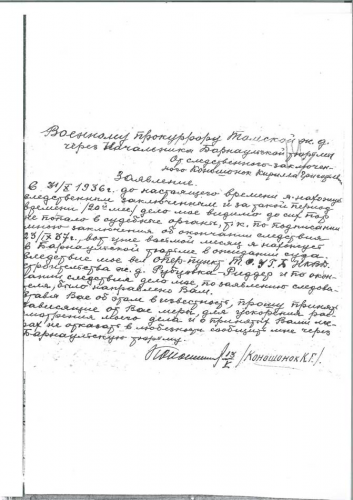 Военному прокурору Томской ж.д.
через Начальника Барнаульской тюрьмы
От следственного-заключен-
ного Коношонок Кирилла Григорьев.
Заявление.
С 31/X 1936г. до настоящего времени я нахожусь
следственным заключенным и за такой период
времени /20ть ме/ дело мое видимо до сих пор
не попало в судебные органы, т.к. по подписании
мною заключения об окончании следствия
23/IX 37г., вот уже восьмой месяц я нахожусь
в Барнаульской тюрьме в ожидании суда.
Следствие мое вел Опер-пункт
строительства ж.д. Рубцовка-Риддер и по окон-
чании следствия дело мое по заявлению следова-
теля, было направлено Вам.
Ставя Вас об этом в известность, прошу принять
зависящие от Вас меры, для ускорения рас-
смотрения моего дела и о принятых Вами ме-
рах не отказать в любезности сообщить мне через
Барнаульскую тюрьму.
/Коношонок К.Г./